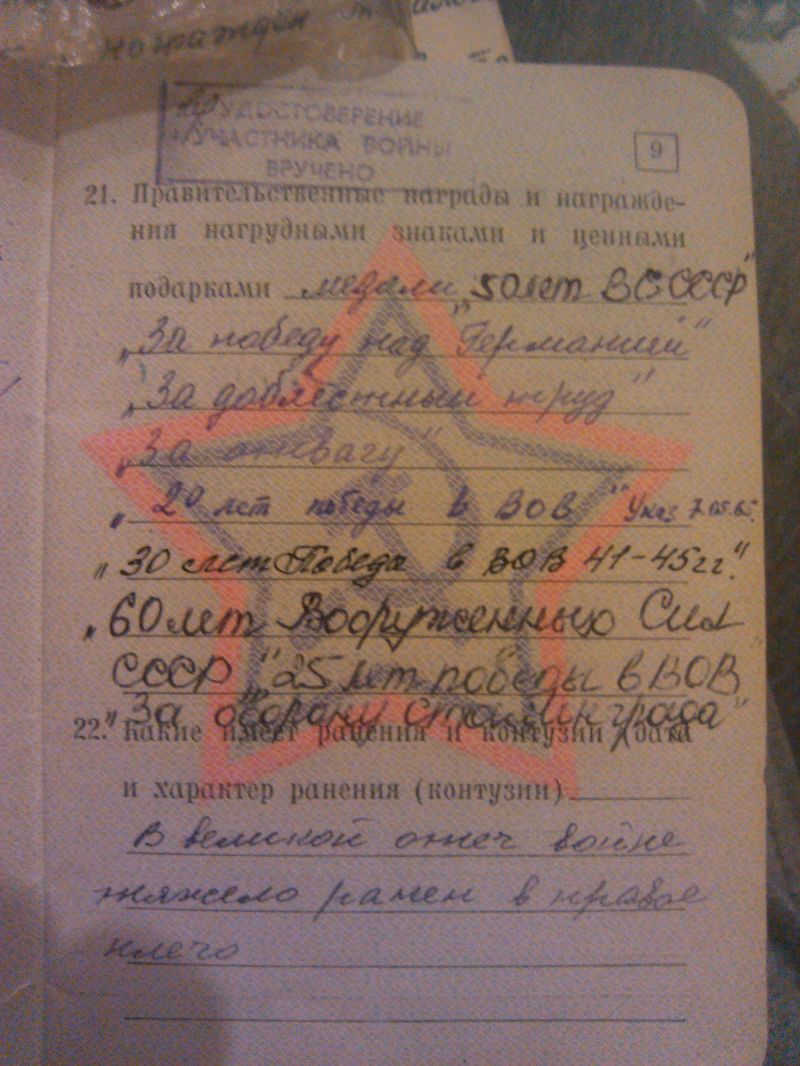 награждён
УДОСТОВЕРЕНИЕ
УЧАСТНИКА ВОЙНЫ
ВРУЧЕНО
9
21. Правительственные награды и награжде-
ния нагрудными знаками и ценными
подарками медали „50 лет ВС СССР"
„За победу над Германией"
„За доблестный труд"
„За отвагу"
„20 лет победы в ВОВ" Указ 7.05.65.
„30 лет Победы в ВОВ 41-45гг."
„60 лет Вооруженных Сил
СССР „25 лет победы в ВОВ"
„За оборону Сталинграда"
22. Какие имеет ранения и контузии, дата
и характер ранения (контузии)
В великой отеч войне
тяжело ранен в правое
плечо